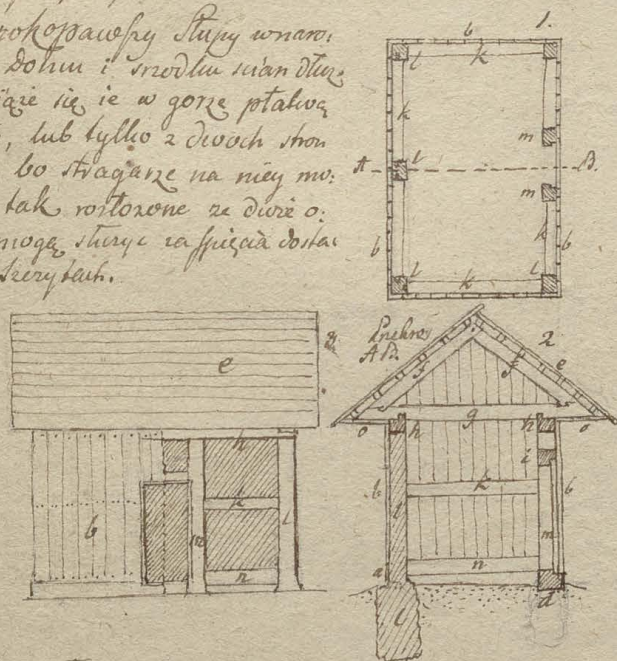 rokopawszy słupy wnaro:
dołu i srzodku scian dłuz:
ąże się ie w gorze płatwą
, lub tylko z dwoch stron
bo stragarze na niey mo:
tak rozłozone ze duże o:
mogą służyc za spięcia dosta:
szczytach.
1.
b
l k l
k
m
A l B.
m
b k b
l k l
3.
e
h
k
b m l
n
Przekro
AB.
2
f f e
o g o
h h
i
b l k b
m
a n
l d